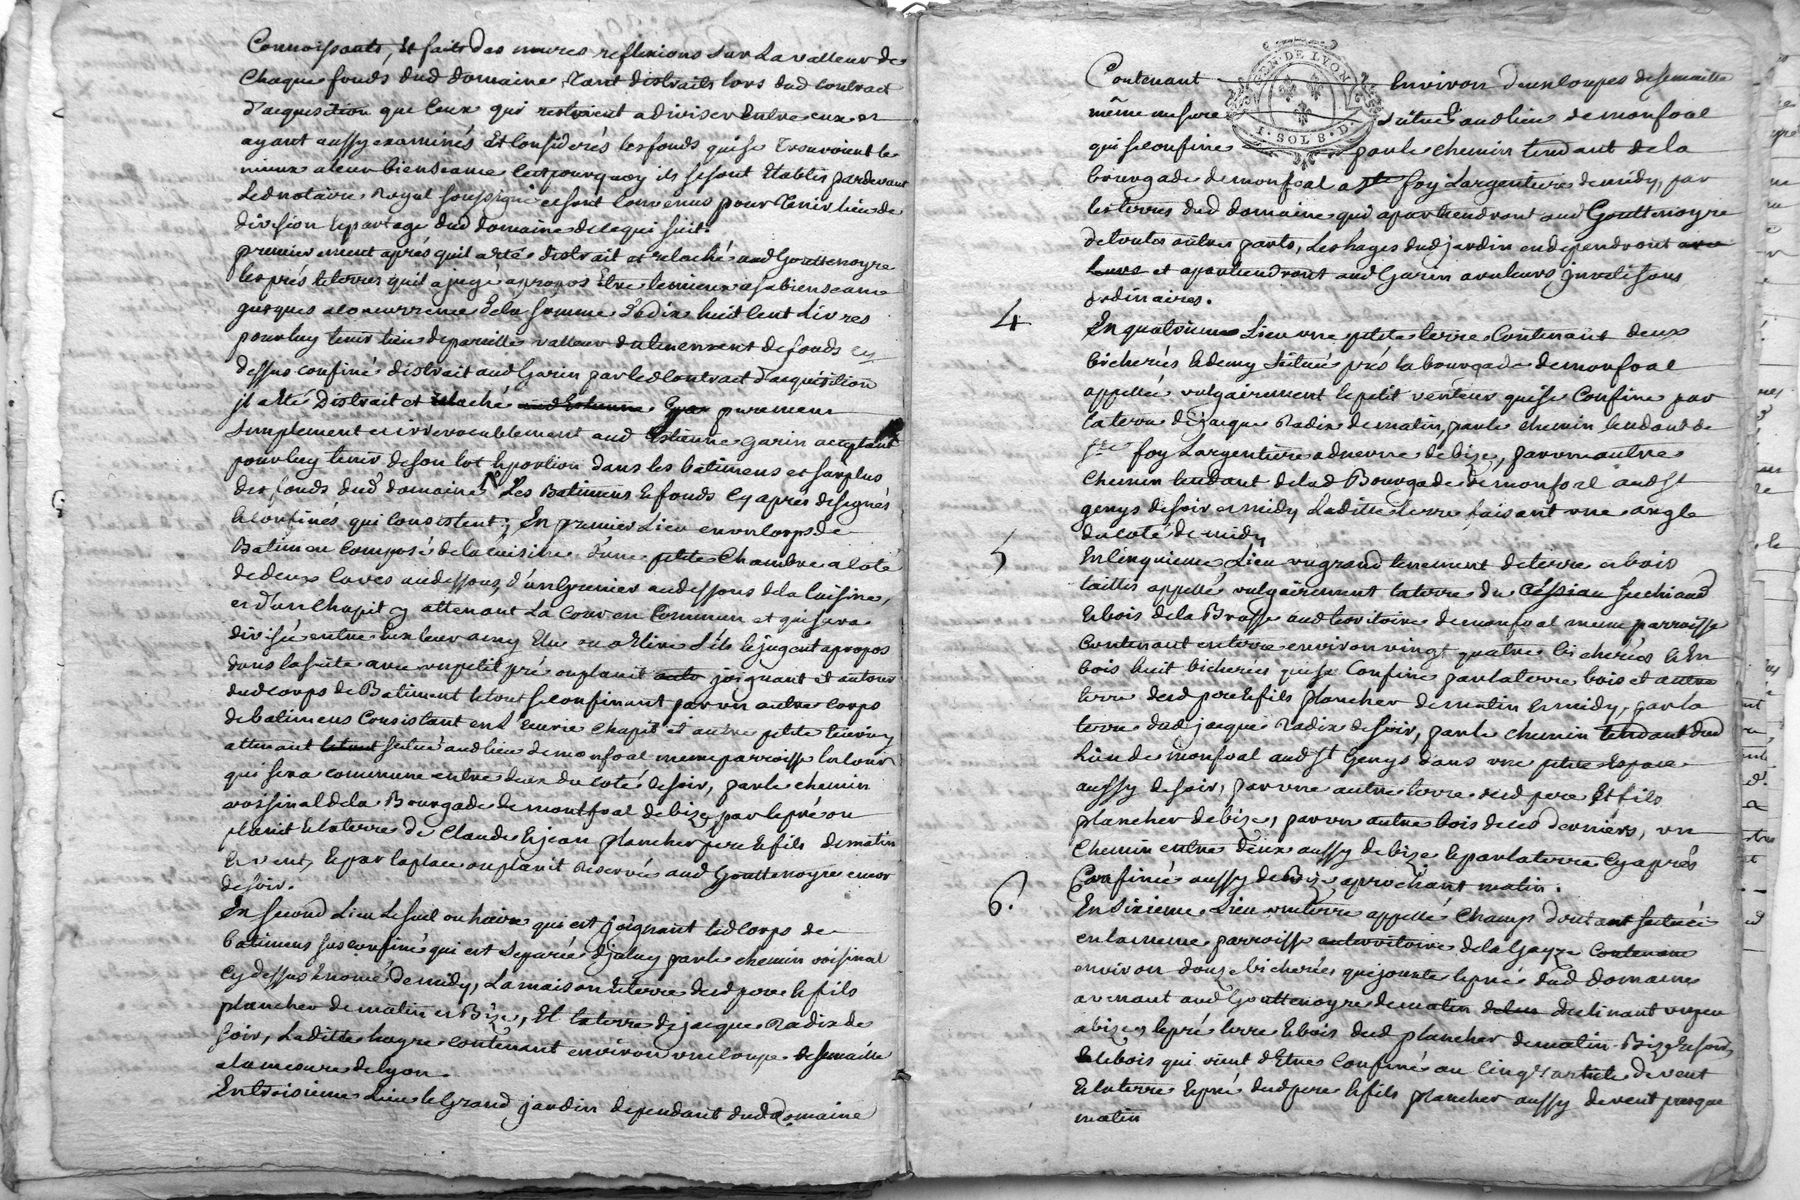 Connoissants, Et faits Des meures reflexions sur La valleur de
Chaque fonds dud domaine, Tant distraits lors dud contract
d'acquisition que Ceux qui restoient a diviser Entre eux et
ayant aussy examinés Et Considerés les fonds qui se Trouvoient le
mieux a leur bienseance C'est pourquoy ils se sont Etablis pardevant
Led notaire Royal soussigné et sont Convenus pour Tenir lieu de
division Et partage dud domaine de ce qui suit.
premierement aprés quil a eté distrait et relaché aud Gouttenoyre
les prés et terres quil a jugé apropos Etre le mieux a sa bienseance
jusques a concurrence de la somme De dix huit Cent Livres
pour luy tenir lieu de pareille valleur du tenement de fonds cy
dessus confiné distrait aud Garin par led Contract d'acquisition
jl a eté Distrait et relaché aud Estienne Garin purement
simplement et irrevocablement aud Estienne Garin acceptant
pour luy tenir de son lot et portion dans les batimens et surplus
des fonds dud domaine Les Batimens et fonds Cy aprés designés
et Confinés qui Consistent; En premier Lieu en un Corps de
Batiment Composé de la Cuisine d'une petite Chambre a Coté
de deux Caves au dessous, d'un Grenier au dessous de la Cuisine,
et d'un Chapit y attenant La Cour en Commun et qui sera
divisée entre Eux
dans la suite avec un petit pré ou planit joignant et autour
dud Corps de Batiment le tout se Confinant par un autre Corps
de batimens Consistant en Ecurie Chapit et autre petite Ecurie y
attenant situé aud lieu de monfoal meme parroisse la Cour
qui sera commune entre deux du coté de soir, par le chemin
voisinal de la Bourgade de montfoal de bize, par le pré ou
planit Et la terre de Claude Et jean plancher pere Et fils de matin
Et vent, Et par la place ou planit Reservée aud Gouttenoyre encor
de soir.
En second Lieu Le suel ou haire qui est joignant led Corps de
batimens sus confiné qui est Separée d'jceluy par le chemin voisinal
Cy dessus Enoncé De midy, La maison Et terre desd pere Et fils
plancher de matin et Bize, Et la terre de jacque Radix de
soir, Laditte hayre contenant environ une Coupe de semaille
a la mesure de Lyon.
En troisieme Lieu le Grand jardin dependant dud Domaine
Contenant Environ deux Coupes de semaille
GEN. DE LYON
même mesure situé aud lieu de monfoal
1. SOL 8. D.
qui se confine par le chemin tendant de la
bourgade de monfoal a ste foy L'argentiere de midy, par
les terres dud domaine qui apartiendront aud Gouttenoyre
de toutes autres parts, Les hayes dud jardin en dependront
Leurs et apartiendront aud Garin avec leurs jnvetisons
ordinaires.
4
En quatrieme Lieu une petite terre Contenant deux
bicherées Et demy Située prés la bourgade de monfoal
appellée vulgairement le petit venteur qui se Confine par
la terre de jacque Radix de matin, par le chemin tendant de
ste foy L'argentiere a duerne de bize, par un autre
chemin tendant de lad Bourgade de monfoal aud st
genys de soir et midy Laditte terre faisant une angle
du coté de midy
5
En Cinquieme Lieu un grand tenement de terre et bois
taillis appellé vulgairement la terre du
Et bois de la Brosse aud territoire de monfoal meme parroisse
Contenant en terre environ vingt quatre bicherées Et En
bois huit bicherées qui se Confine par la terre bois et autre
terre desd pere Et fils plancher de matin Et midy, par la
terre dud jacque Radix de soir, par le chemin tendant dud
Lieu de monfoal aud st Genys dans une petite Espace
aussy de soir, par une autre terre desd pere Et fils
plancher de bize, par un autre bois de ces derniers, un
chemin entre deux aussy de bize Et par la terre Cy aprés
Confinée aussy de Bize aprochant matin.
6.
En Sixieme Lieu une terre appellée Champ située
en la meme parroisse de la Gayze Contenant
environ douze bicherées qui jouxte le pré dud domaine
avenant aud Gouttenoyre de matin declinant un peu
a bize, le pré terre Et bois dud plancher de matin Bize Et soir,
Et le bois qui vient d'Etre Confiné au Cinq.e article de vent
Et la terre Et pré desd pere Et fils plancher aussy de vent presque
matin